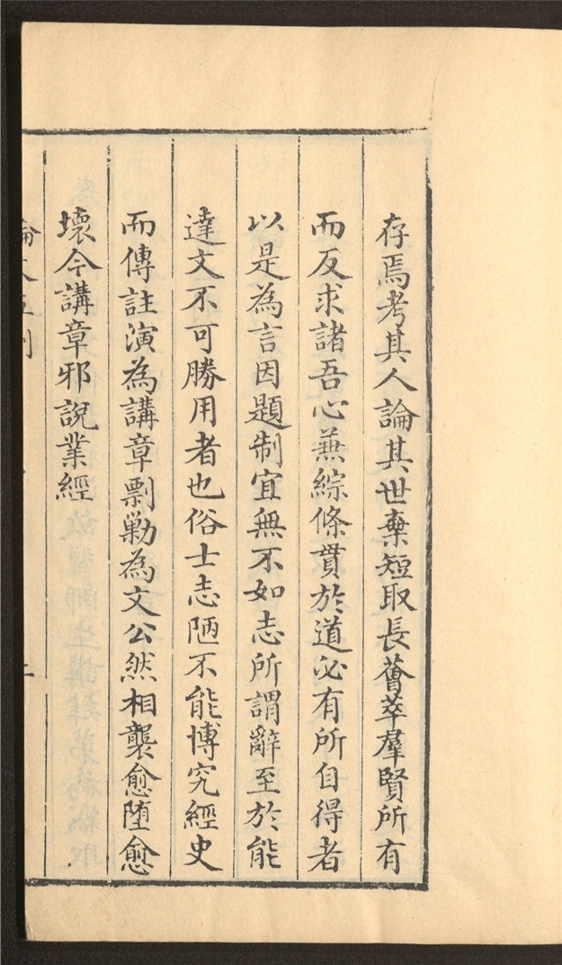 存焉考其人論其世棄短取長薈萃羣賢所有
而反求諸吾心兼綜條貫於道必有所自得者
以是為言因題制宜無不如志所謂辭至於能
達文不可勝用者也俗士志陋不能博究經史
而傳註演為講章剽勦為文公然相襲愈堕愈
壞今講章邪說業經